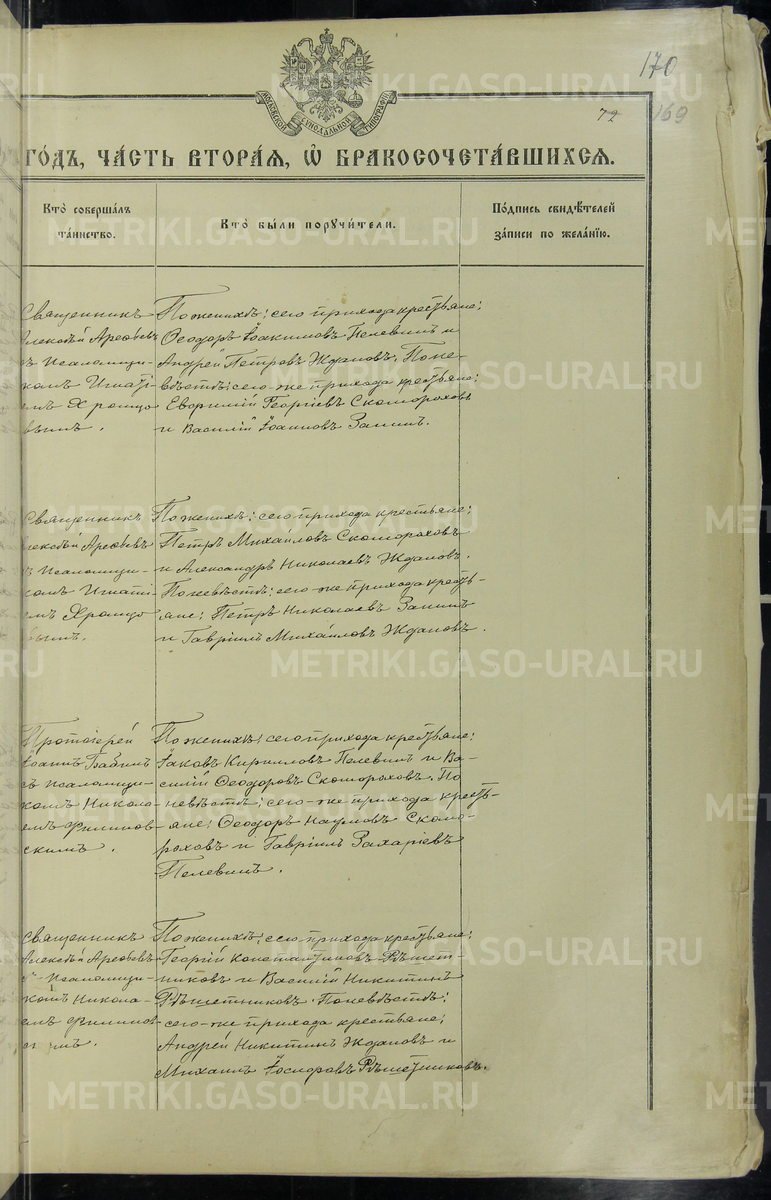 170
72
169
МОСКОВСКОЙ СѴНОДАЛЬНОЙ ТИПОГРАФІИ
ГОДЪ, ЧАСТЬ ВТОРАЯ, Ѽ БРАКОСОЧЕТАВШИХСЯ.
Кто совершалъ таинство.
Кто были поручители.
Подпись свидѣтелей записи по желанію.
Священникъ
Алексѣй Арефьевъ
съ псаломщи-
комъ Игнаті-
емъ Хромцо
вымъ.
По женихѣ: сего прихода крестьяне:
Ѳеодоръ Іоакимовъ Пелевинъ и
Андрей Петровъ Ждановъ. По не-
вѣстѣ: сего-же прихода крестьяне:
Евѳимій Георгіевъ Скомороховъ
и Василій Іоанновъ Заминъ.
Священникъ
Алексѣй Арефьевъ
съ псаломщи-
комъ Игнаті-
емъ Хромцо
вымъ.
По женихѣ: сего прихода крестьяне:
Петръ Михаиловъ Скомороховъ
и Александръ Николаевъ Ждановъ.
По невѣстѣ: сего-же прихода кресть-
яне: Петръ Николаевъ Заминъ
и Гавріилъ Михаиловъ Ждановъ.
Протоіерей
Іоаннъ Бабинъ
съ псаломщи-
комъ Никола-
емъ Филинов-
скимъ.
По женихѣ: сего прихода крестьяне:
Іаковъ Кирилловъ Пелевинъ и Ва-
силій Ѳеодоровъ Скомороховъ. По
невѣстѣ: сего-же прихода кресть-
яне: Ѳеодоръ Наумовъ Скомо-
роховъ и Гавріилъ Захаріевъ
Пелевинъ.
Священникъ
Алексѣй Арефьевъ
съ псаломщи-
комъ Никола-
емъ Филинов
скимъ.
По женихѣ: сего прихода крестьяне:
Георгій Константиновъ Рѣшет-
никовъ и Василій Никитинъ
Рѣшетниковъ. По невѣстѣ:
сего-же прихода крестьяне:
Андрей Никитинъ Ждановъ и
Михаилъ Іосифовъ Рѣшетниковъ.
METRIKI.GASO-URAL.RU